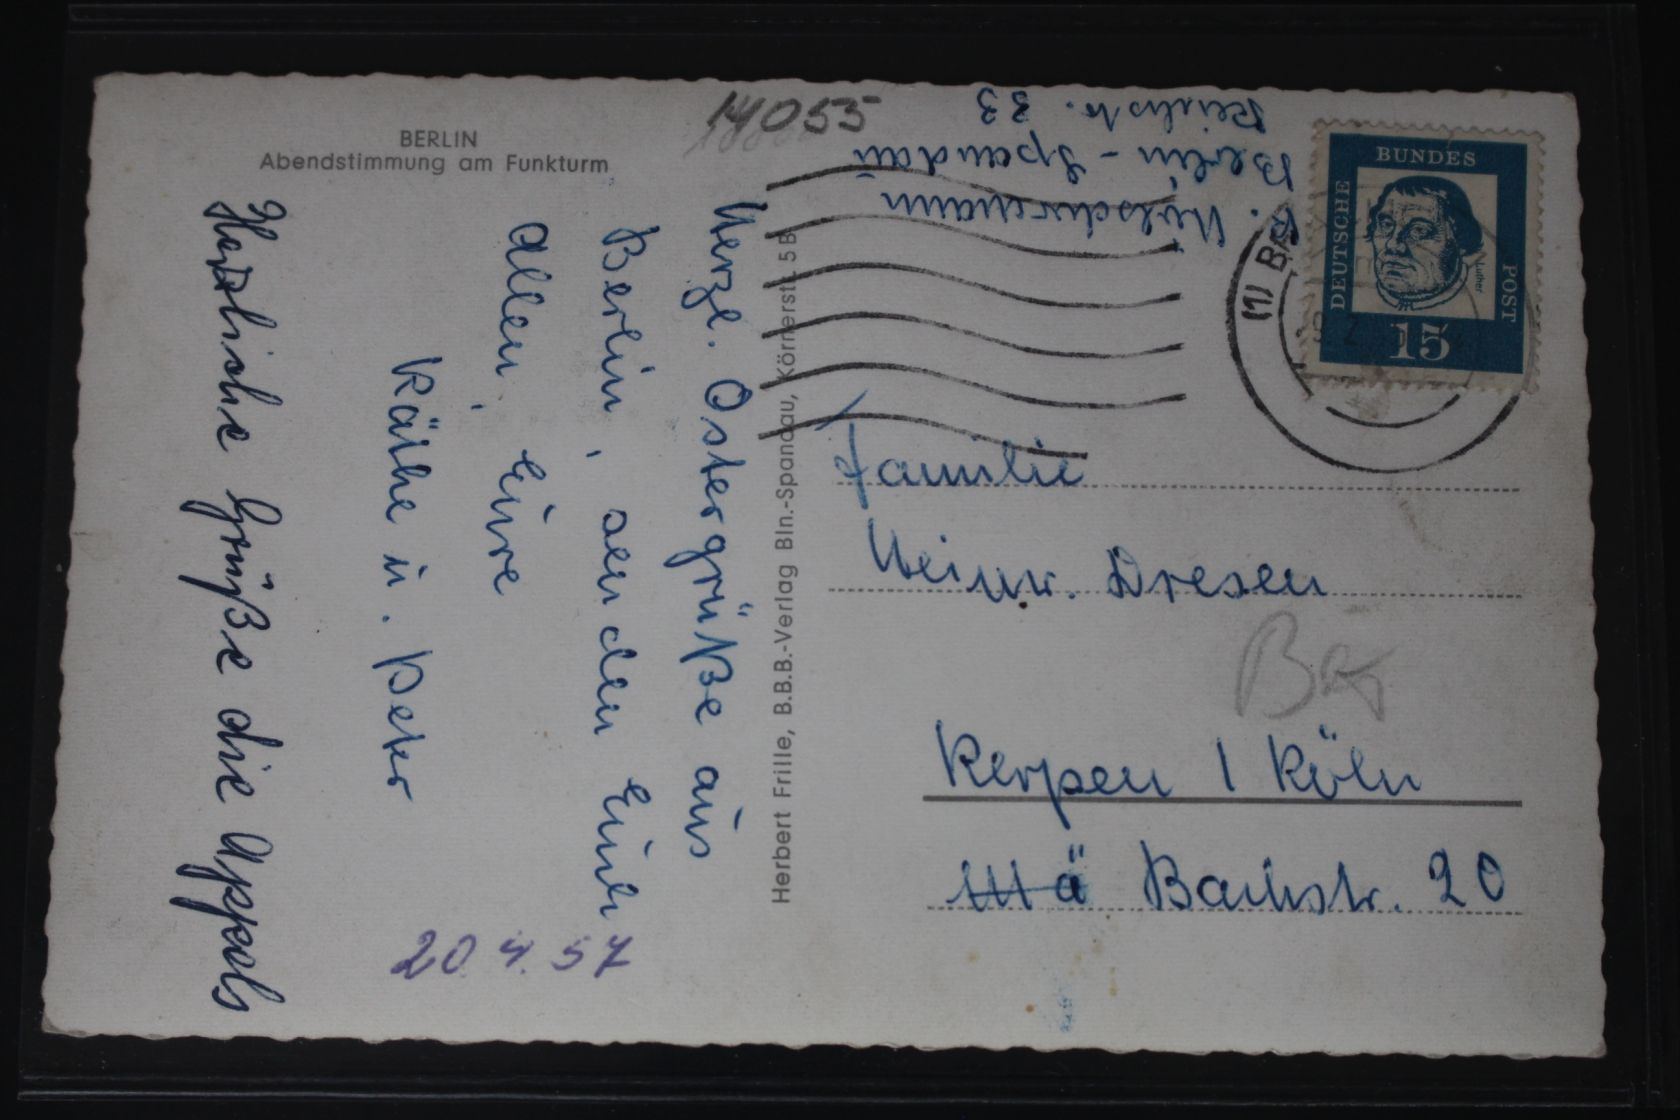 BERLIN
Abendstimmung am Funkturm
14055
Herzl. Ostergrüße aus
Berlin, senden Euch
allen, Eure
Käthe u. Peter
Herzliche Grüße die Appels
20.4.57
Herbert Frille, B.B.B.-Verlag Bln.-Spandau, Körnerstr. 5B
Berlin-Spandau
33
DEUTSCHE
BUNDES
POST
Luther
15
(1) B
Familie
Heinr. Dresen
Kerpen / Köln
Bachstr. 20